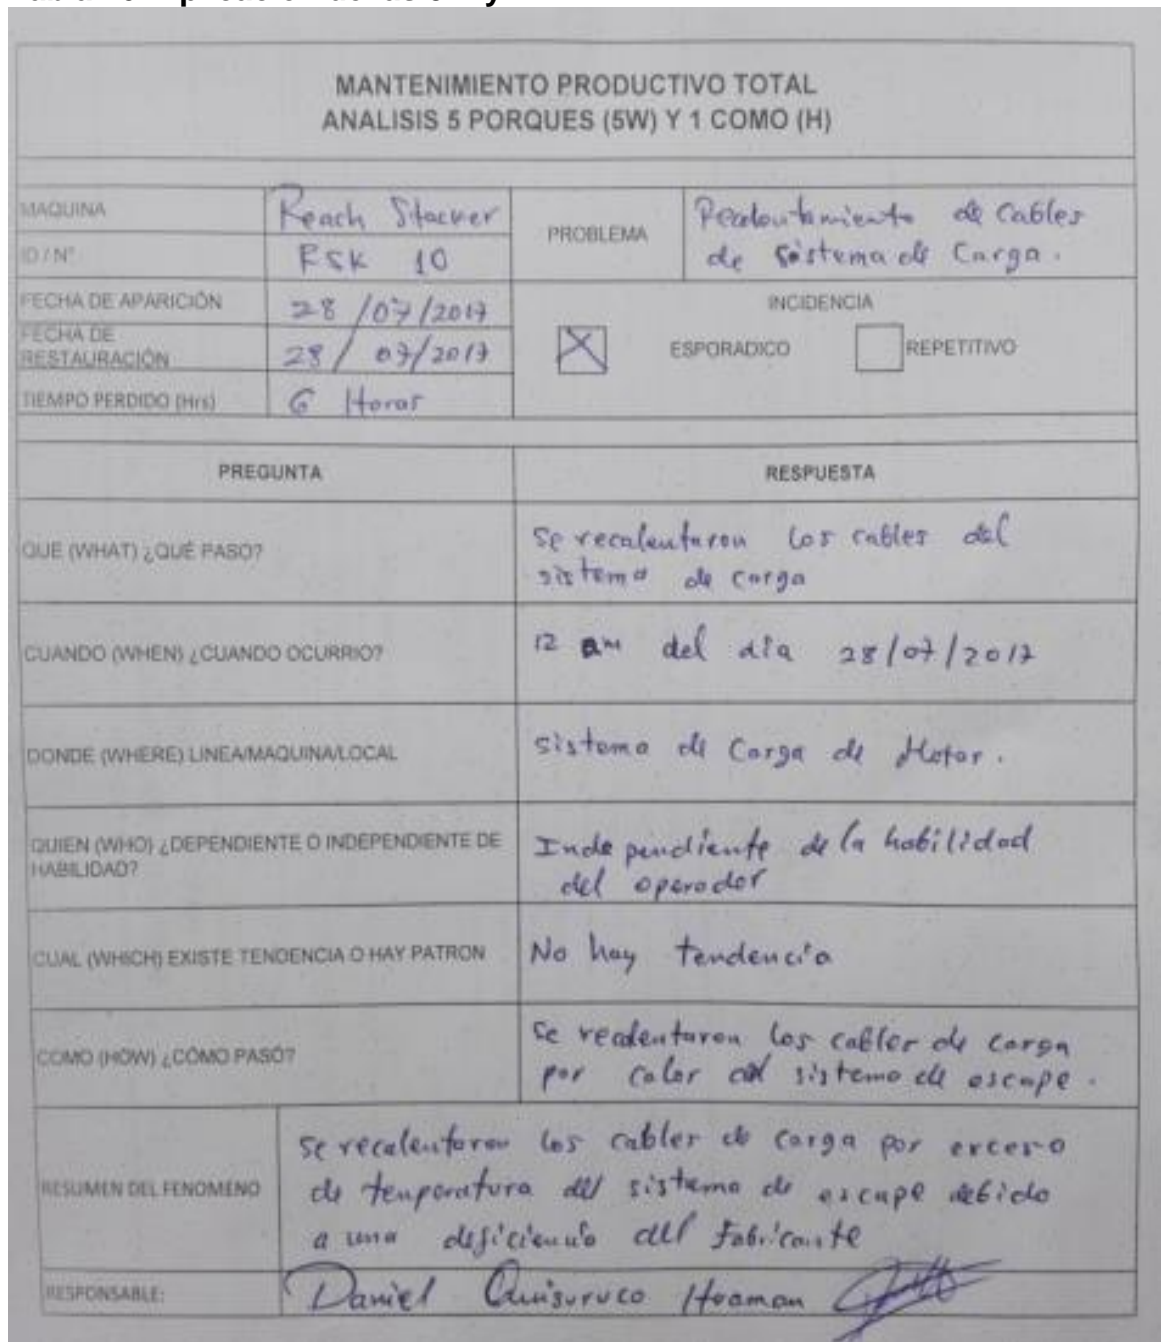 MANTENIMIENTO PRODUCTIVO TOTAL
ANALISIS 5 PORQUES (5W) Y 1 COMO (H)
MAQUINA
Reach Stacker
ID / N°
RSK 10
PROBLEMA
Recalentamiento de Cables
de sistema de Carga.
FECHA DE APARICIÓN
28/07/2017
FECHA DE
RESTAURACIÓN
28/07/2017
TIEMPO PERDIDO (Hrs)
6 Horas
INCIDENCIA
ESPORADICO
REPETITIVO
PREGUNTA
RESPUESTA
QUE (WHAT) ¿QUÉ PASO?
Se recalentaron los cables del
sistema de carga
CUANDO (WHEN) ¿CUANDO OCURRIO?
12 am del dia 28/07/2017
DONDE (WHERE) LINEA/MAQUINA/LOCAL
sistema de Carga de Motor.
QUIEN (WHO) ¿DEPENDIENTE O INDEPENDIENTE DE
HABILIDAD?
Independiente de la habilidad
del operador
CUAL (WHICH) EXISTE TENDENCIA O HAY PATRON
No hay tendencia
COMO (HOW) ¿CÓMO PASÓ?
se recalentaron los cables de carga
por calor del sistema de escape.
RESUMEN DEL FENOMENO
se recalentaron los cables de carga por exceso
de temperatura del sistema de escape debido
a una deficiencia del fabricante
RESPONSABLE:
Daniel Huaman